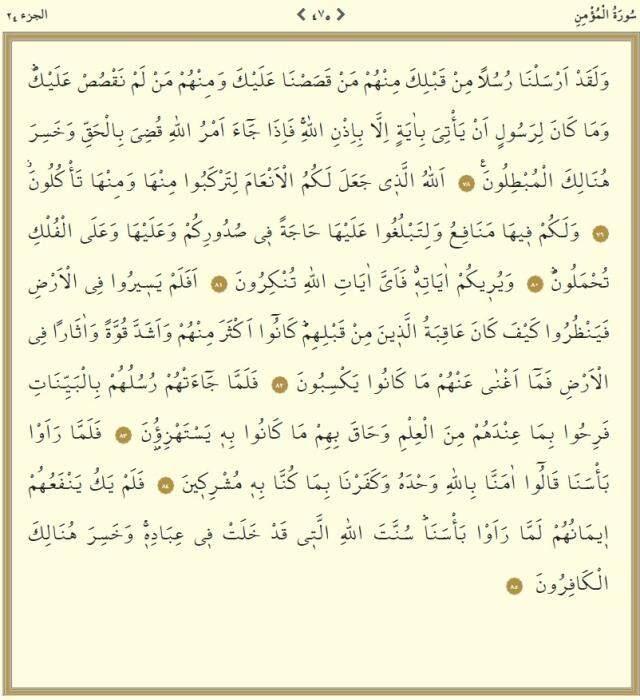 سُورَةُ الْمُؤْمِنِ ❮ ٤٧٥ ❯ الجزء ٢٤
وَلَقَدْ اَرْسَلْنَا رُسُلًا مِنْ قَبْلِكَ مِنْهُمْ مَنْ قَصَصْنَا عَلَيْكَ وَمِنْهُمْ مَنْ لَمْ نَقْصُصْ عَلَيْكَۜ
وَمَا كَانَ لِرَسُولٍ اَنْ يَأْتِيَ بِاٰيَةٍ اِلَّا بِاِذْنِ اللّٰهِۚ فَاِذَا جَٓاءَ اَمْرُ اللّٰهِ قُضِيَ بِالْحَقِّ وَخَسِرَ
هُنَالِكَ الْمُبْطِلُونَ۟ ٧٨ اَللّٰهُ الَّذ۪ي جَعَلَ لَكُمُ الْاَنْعَامَ لِتَرْكَبُوا مِنْهَا وَمِنْهَا تَأْكُلُونَۘ
٧٩ وَلَكُمْ ف۪يهَا مَنَافِعُ وَلِتَبْلُغُوا عَلَيْهَا حَاجَةً ف۪ي صُدُورِكُمْ وَعَلَيْهَا وَعَلَى الْفُلْكِ
تُحْمَلُونَۜ ٨٠ وَيُر۪يكُمْ اٰيَاتِه۪ۗ فَاَيَّ اٰيَاتِ اللّٰهِ تُنْكِرُونَ ٨١ اَفَلَمْ يَس۪يرُوا فِي الْاَرْضِ
فَيَنْظُرُوا كَيْفَ كَانَ عَاقِبَةُ الَّذ۪ينَ مِنْ قَبْلِهِمْۜ كَانُٓوا اَكْثَرَ مِنْهُمْ وَاَشَدَّ قُوَّةً وَاٰثَارًا فِي
الْاَرْضِ فَمَٓا اَغْنٰى عَنْهُمْ مَا كَانُوا يَكْسِبُونَ ٨٢ فَلَمَّا جَٓاءَتْهُمْ رُسُلُهُمْ بِالْبَيِّنَاتِ
فَرِحُوا بِمَا عِنْدَهُمْ مِنَ الْعِلْمِ وَحَاقَ بِهِمْ مَا كَانُوا بِه۪ يَسْتَهْزِؤُ۫نَ ٨٣ فَلَمَّا رَاَوْا
بَأْسَنَا قَالُٓوا اٰمَنَّا بِاللّٰهِ وَحْدَهُ وَكَفَرْنَا بِمَا كُنَّا بِه۪ مُشْرِك۪ينَ ٨٤ فَلَمْ يَكُ يَنْفَعُهُمْ
ا۪يمَانُهُمْ لَمَّا رَاَوْا بَأْسَنَاۜ سُنَّتَ اللّٰهِ الَّت۪ي قَدْ خَلَتْ ف۪ي عِبَادِه۪ۚ وَخَسِرَ هُنَالِكَ
الْكَافِرُونَ ٨٥